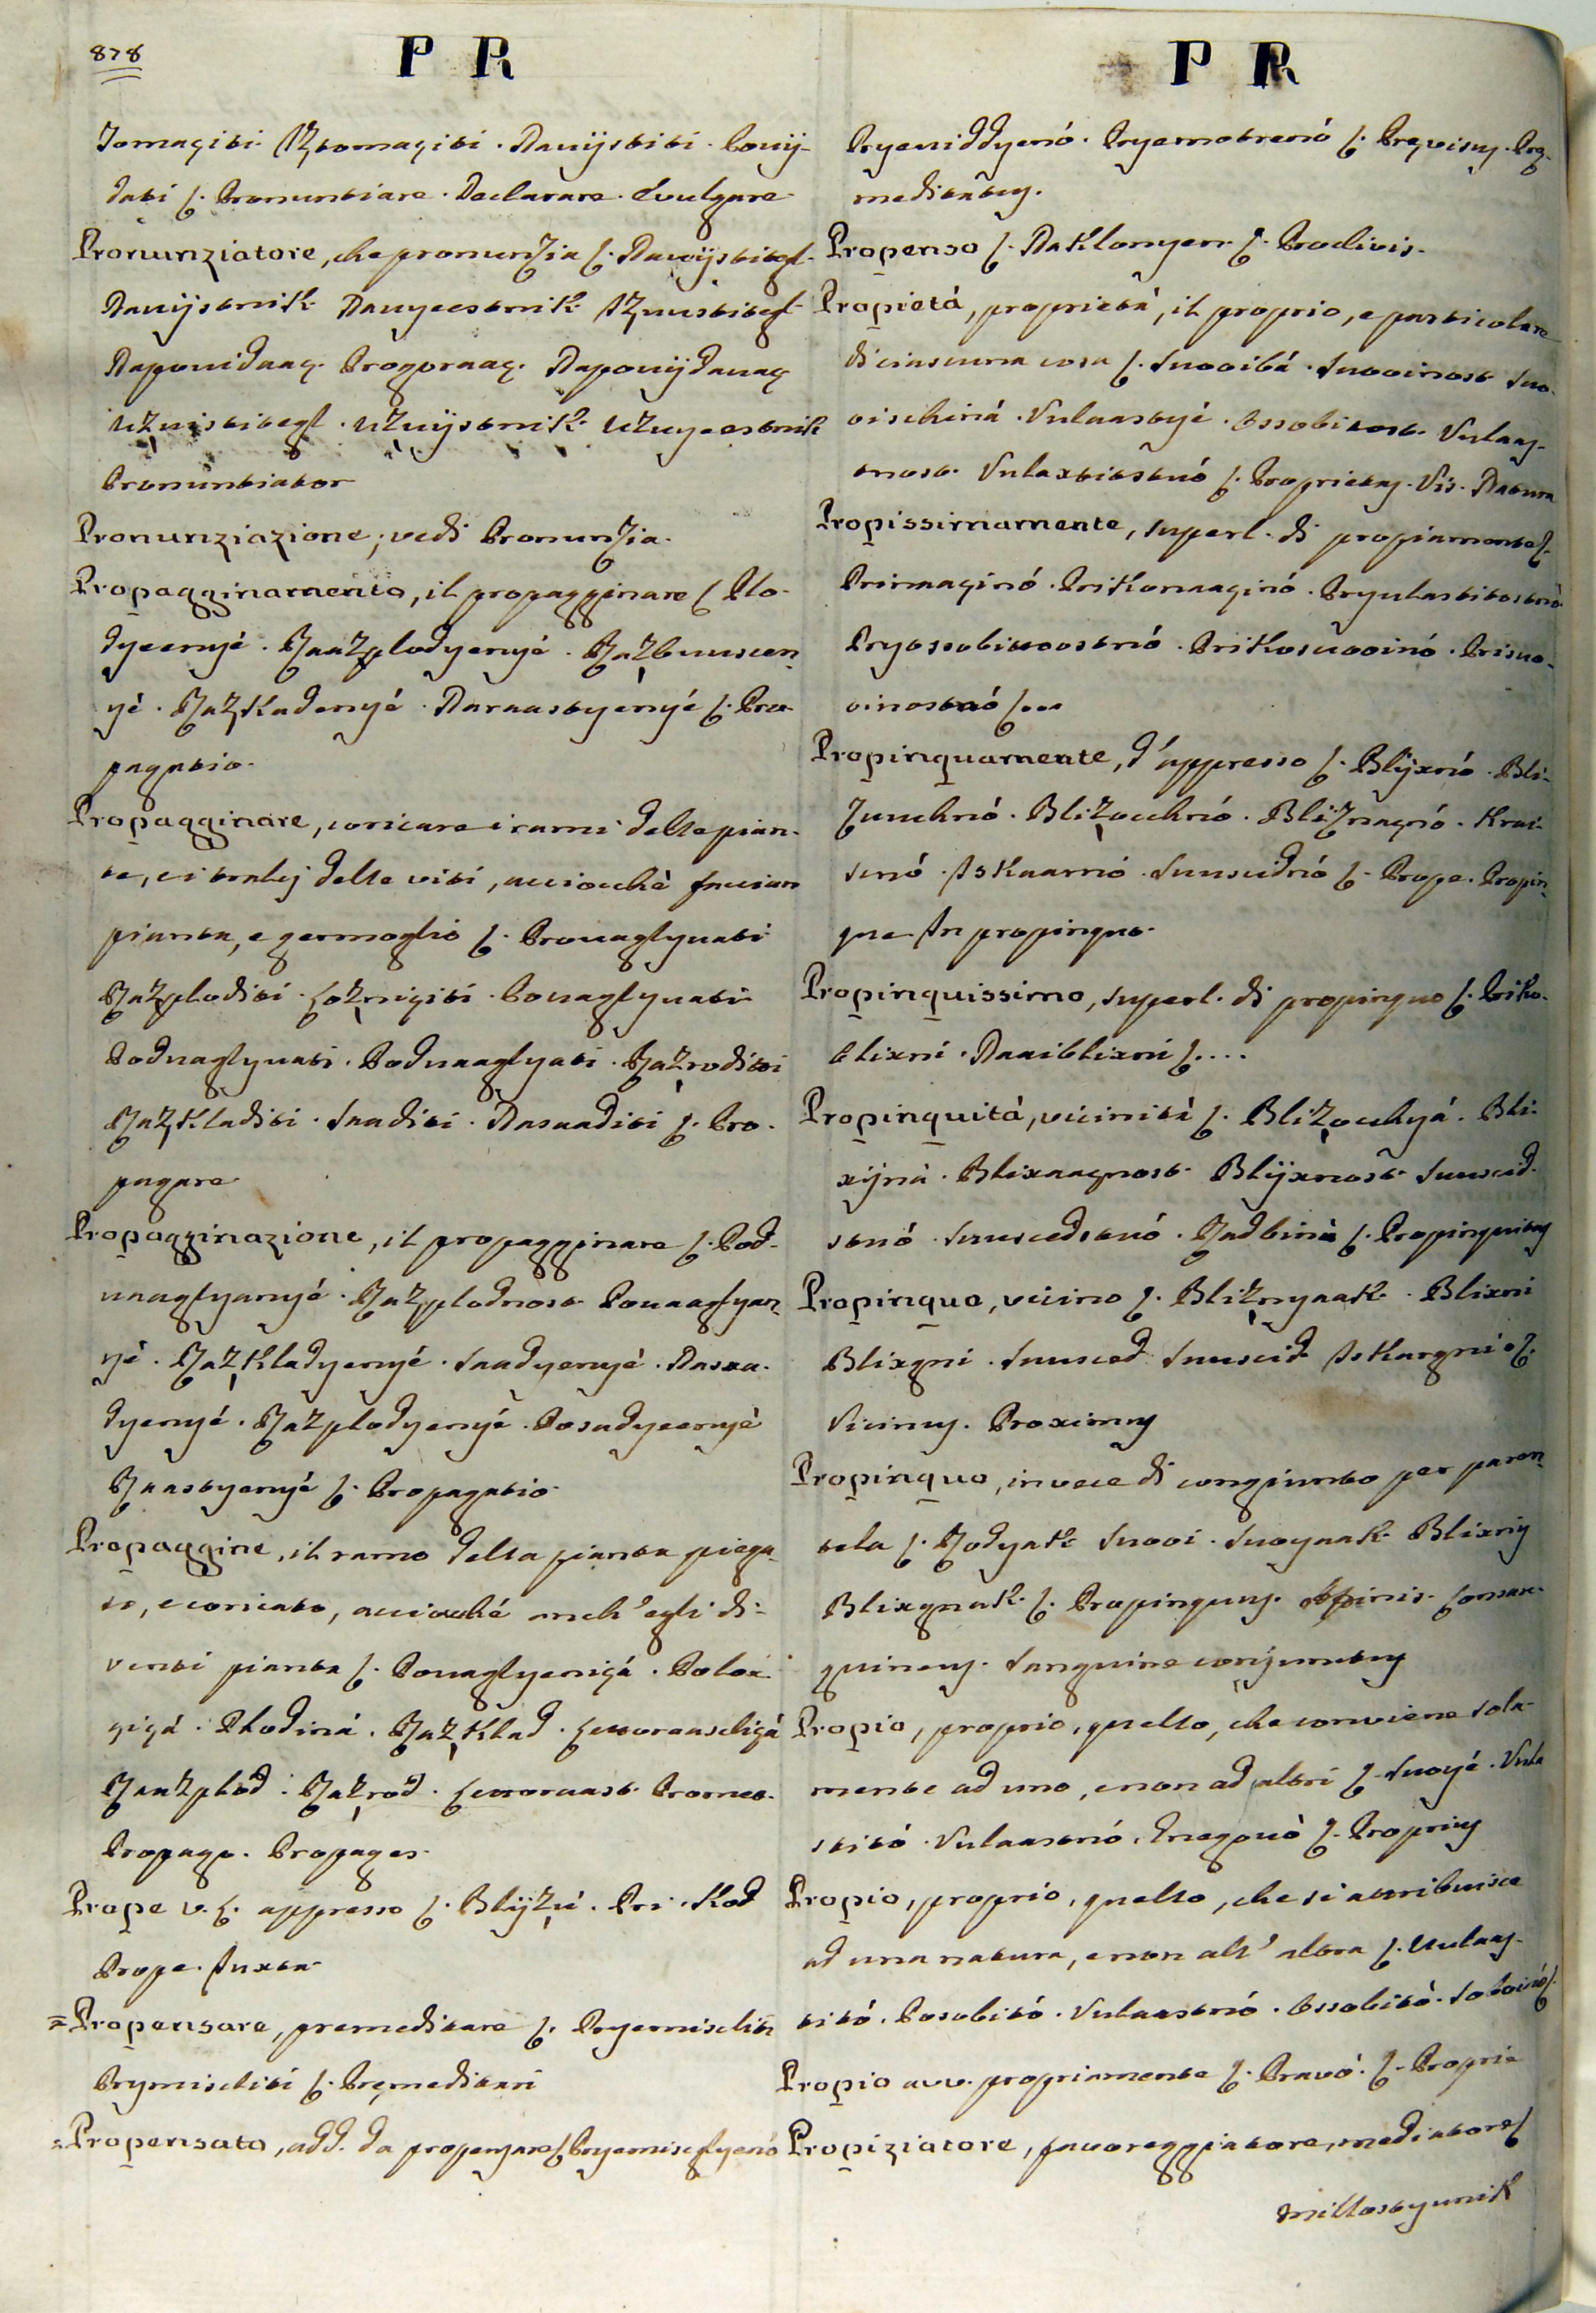 878
P R
Tomaçiti. Iztomaçiti. Navijstiti. Povij-
dati ſ. Pronuntiare. Declarare. Evulgare
Pronunziatore, che pronunzia ſ. Navijstitegl.
Navijstnik. Navyeestnik. Izvustitegl.
Napovidaaç. Progoraaç. Napovijdavaç
Uzvistitegl. Uzvijstnik. Uzvyeestnik
Pronuntiator
Pronunziazione, vedi Pronunzia.
Propagginamento, il propagginare ſ. Plo-
dyeenyé. Raazplodyenyé. Razbuuscen-
yé. Razkadenyé. Naraastyényé ſ. Pro-
pagatio.
Propagginare, coricare i rami delle pian-
te, e i tralcj delle viti, acciocchè faccian
pianta, e germoglio ſ. Provaglyvati
Razploditi. Loznigiti. Povaglyvati
Podvaglyvati. Podvaaglyati. Razroditi
Razkladiti. Saaditi. Nasaaditi ſ. Pro-
pagare
Propagginazione, il propagginare ſ. Pod-
vaaglyanyé. Razplodnost. Povaaglyan-
yé. Razkladyenyé. Saadyenyé. Nasaa-
dyenyé. Razplodyenyé. Posadyeenyè
Raastyenyé ſ. Propagatio.
Propaggine, il ramo della pianta piega-
to, e coricato, acciocché anch' egli di-
venti pianta ſ. Povaglyeniçá. Poloxi-
niçá. Plodiná. Razklad.
Raazplod. Razrod.
Propago. Propages.
Prope v. ſ. appresso ſ. Blijzú. Pri. Kod
Prope. Iuxta.
= Propensare, premeditare ſ. Pryemisliti
Prymisliti ſ. Premeditari
= Propensato, add. da propensare ſ. Pryemisglyenó
P R
Pryeviddyenó. Pryemotrenó ſ. Prævisus. Præ-
meditatus.
Propenso ſ. Naklonyen. ſ. Proclivis.
Propietá, proprietá, il proprio, e particolare
di ciascuna cosa ſ. Svooibá. Svooinost. Svo-
oischiná. Vulaastyé. Ossobitost. Vulaas-
tnost. Vulaxtitstvó ſ. Proprietas. Vis. Natura
Propissimamente, superl. di propiamente ſ.
Primaaginó. Prikomaaginó. Pryulastitostnò.
Pryossobitoostnó. Prikosvooinó. Prisvo-
oinostnó ſ...
Propinquamente, d'appresso ſ. Blijxnó. Bli-
zuuchnó. Blizocchnó. Bliznagnó. Krai-
snó. Iskaarnó. Suuscidnó ſ. Prope. Propin-
que. In propinquo.
Propinquissimo, superl. di propinquo ſ. Priko-
blixni. Naaiblixni ſ....
Propinquitá, vicinità ſ. Blizocchyá. Bli-
xijná. Blixaagnost. Blijxnost. Suuscid-
stvó. Suuscedstvó. Radbinà ſ. Propinquitas
Propinquo, vicino ſ. Bliznyaak. Blixni
Blixgni. Suusced. Suuscid. Iskargni ſ.
Vicinus. Proximus
Propinquo, in vece di congiunto per paren-
tela ſ. Rodyak. Svooi. Svoyaak. Blixniy
Blixgnak. ſ. Propinquus. Affinis. Consan-
guineus. Sanguine conjunctus
Propio, proprio, quello, che conviene sola-
mente ad uno, e non ad altri ſ. Svoyé. Vula
stitó. Vulaastnó. Gnegovò ſ. Proprius
Propio, proprio, quello, che si attribuisce
ad una natura, e non all' altra ſ. Uulaas-
titó. Posobitó. Vulaastnó. Ossobitò. Soboinó ſ.
Propio avv. propriamente ſ. Pravó. ſ. Proprie
Propiziatore, favoreggiatore, mediatore ſ
Millostyvnik